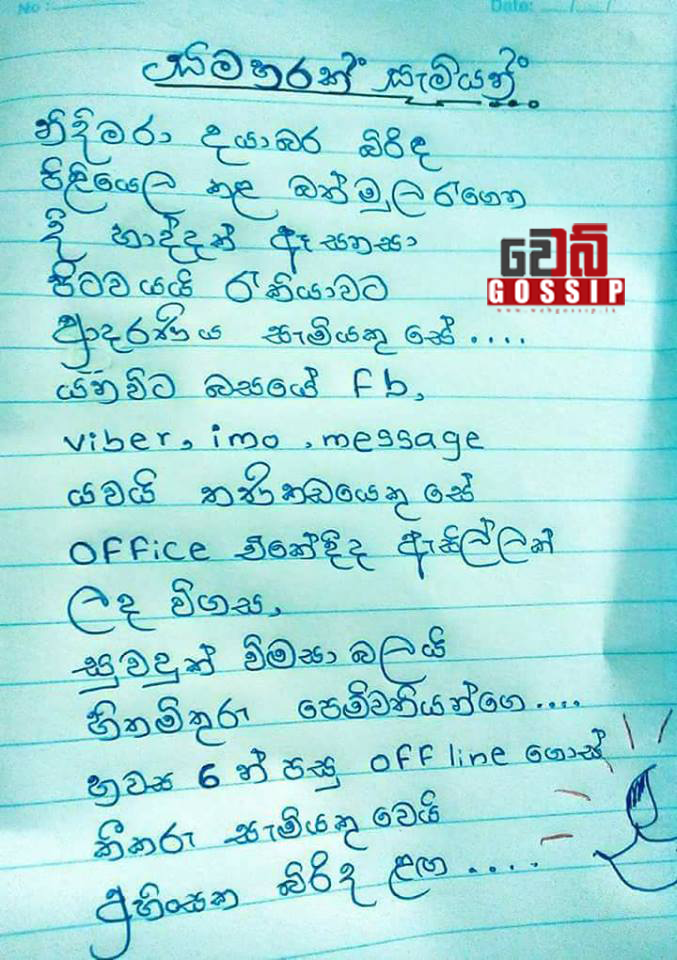 No :
Date: / /
සමහරක් සැමියන්...
නිදිමරා දයාබර බිරිඳ
පිළියෙල කළ බත්මුල රැගෙන
දී හාද්දක් ඈ සනසා
පිටවයයි රැකියාවට
ආදරණීය සැමියකු සේ....
යනවිට බසයේ fb,
viber, imo, message
යවයි තණිකඩයෙකු සේ
office එකේදීද ඇසිල්ලක්
ලද විගස,
සුවදුක් විමසා බලයි
හිතමිතුරු පෙම්වතියන්ගෙ....
හවස 6 න් පසු off line ගොස්
කීකරු සැමියකු වෙයි
අහිංසක බිරිඳ ළඟ ....
වෙබ්
GOSSIP
www.webgossip.lk